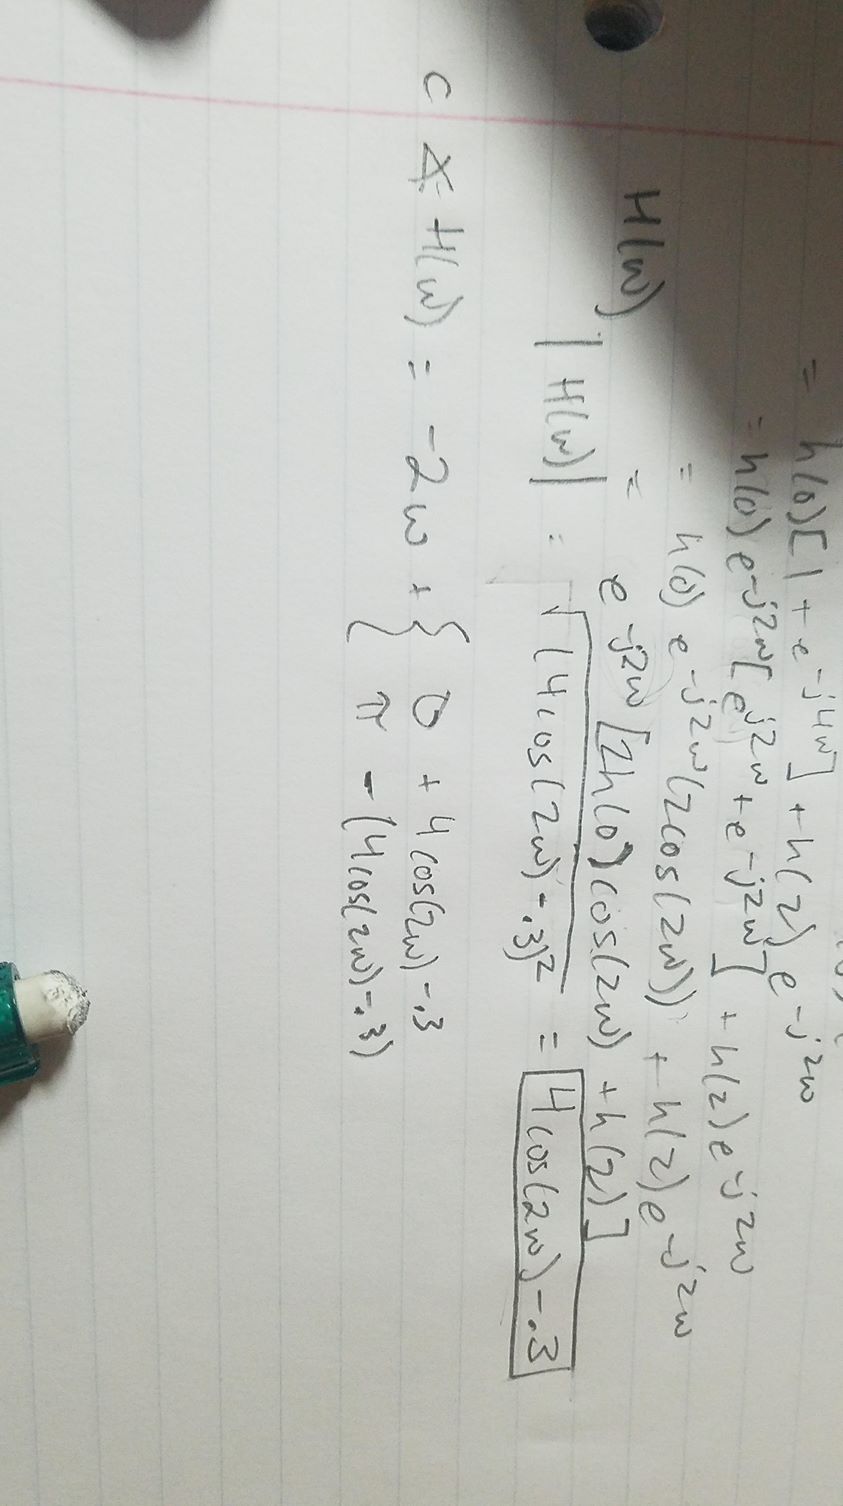 = h(0)[1 + e^-j4ω] + h(2) e^-j2ω
= h(0) e^-j2ω [e^j2ω + e^-j2ω] + h(2) e^-j2ω
= h(0) e^-j2ω (2cos(2ω)) + h(2) e^-j2ω
H(ω) = e^-j2ω [2h(0) cos(2ω) + h(2)]
|H(ω)| = √(4cos(2ω) - .3)² = 4cos(2ω) - .3
C ∡ H(ω) = -2ω + { 0 + 4cos(2ω) - .3
{ π - (4cos(2ω) - .3)